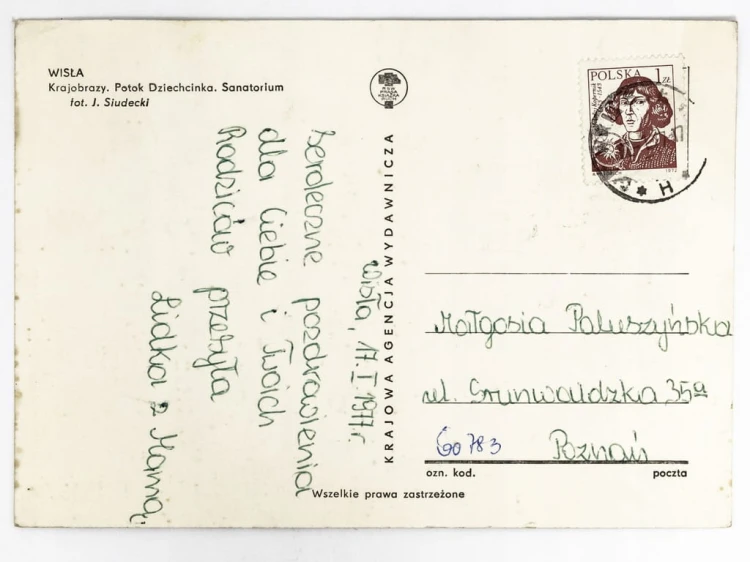 WISŁA
Krajobrazy. Potok Dziechcinka. Sanatorium
fot. J. Siudecki
POLSKA 1 ZŁ
1972
KRAJOWA AGENCJA WYDAWNICZA
Wisła, 17. I 1977 r.
Serdeczne pozdrowienia
dla Ciebie i Twoich
Rodziców przesyła
Lidka z Mamą.
Małgosia Paluszyńska
ul. Grunwaldzka 35a
60783 Poznań
ozn. kod. poczta
Wszelkie prawa zastrzeżone